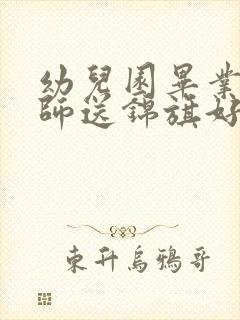 幼兒園畢業
師送錦旗好
東升烏鴉哥